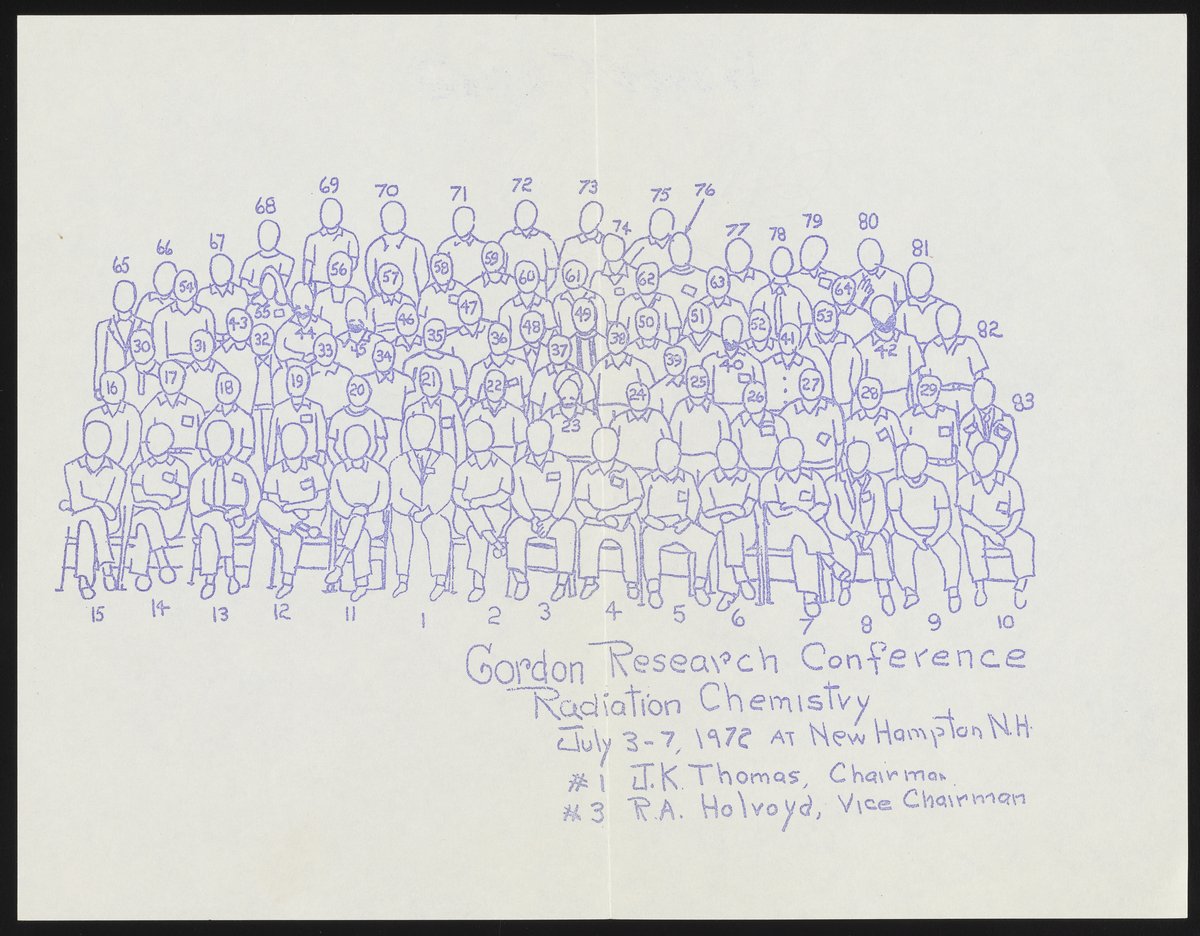 69 70 71 72 73 75 76
68 74 79 80
66 67 77 78 81
65 54 56 57 58 59 60 61 62 63 64
55 43 44 45 46 47 48 49 50 51 52 53 82
30 31 32 33 34 35 36 37 38 39 40 41 42
16 17 18 19 20 21 22 23 24 25 26 27 28 29 83
15 14 13 12 11 1 2 3 4 5 6 7 8 9 10
Gordon Research Conference
Radiation Chemistry
July 3-7, 1972 AT New Hampton N.H.
#1 J.K. Thomas, Chairman
#3 R.A. Holvoyd, Vice Chairman